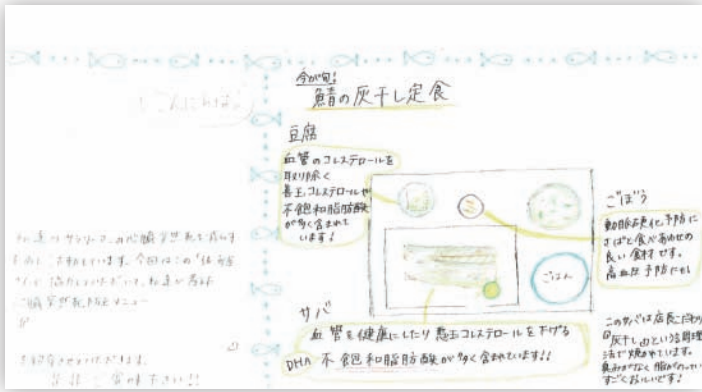 こんにちは!
私達はサラリーマンの心臓突然死を減らす
ために活動しています。今回はこの
に協力していただいて、私達が考えた
心臓突然死防止メニュー
を紹介させていただきます。
今が旬!
鯖の灰干し定食
豆腐
血管のコレステロールを
取り除く
善玉コレステロールや
不飽和脂肪酸
が多く含まれて
います!
ごぼう
動脈硬化予防に
さばと食べあわせの
良い食材です。
高血圧予防にも
ごはん
サバ
血管を健康にしたり悪玉コレステロールを下げる
DHA 不飽和脂肪酸が多く含まれています!!
このサバは店長こだわり
の「灰干し」という調理
法で焼かれています。
臭みがなく脂がのってい
すごくおいしいです!